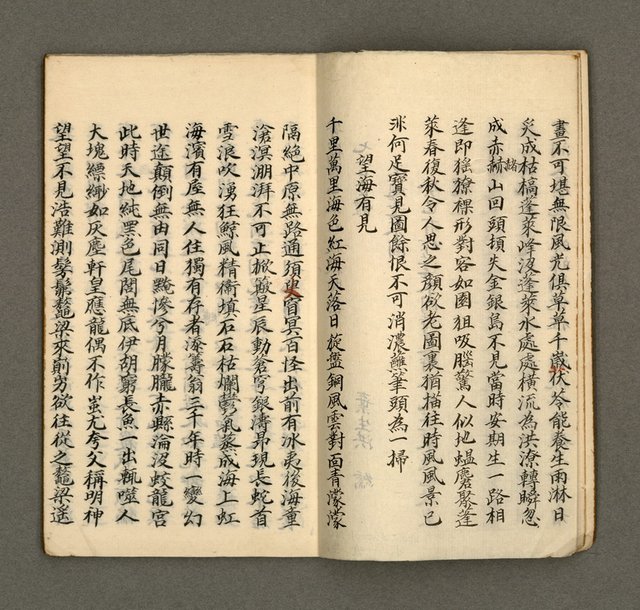 晝不可堪無限風光俱草草千巖茯苓能養生雨淋日
炙成枯槁蓬萊峰沒蓬萊水處處橫流為洪潦轉瞬忽
成赤赫山回頭頓失金銀島不見當時安期生一路相
諸
逢即猺獠裸形對客如園狙吸腦驚人似地蝹麏聚蓬
萊春復秋令人思之顏欲老圖裏猶描往時風風景已
非何足寶見圖餘恨不可消濃蘸筆頭為一掃
望海有見
千里萬里海色紅海天落日掟盤銅風雲對面青濛濛
隔絕中原無路通須臾窅冥百怪出前有冰夷後海童
滄溟湖湃不可止掀簸星辰動蒼穹銀濤昂現長蛇首
雪浪吹湧狂鯨風精衛填石石枯爛氣蒸成海上虹
海濱有屋無人住獨有存者添籌翁三十年時一變幻
世途顛倒無由同日黲慘兮月朦朧赤縣淪沒蛟龍宮
此時天地純黑色尾閭無底伊胡窮長魚一出甄噬人
大塊縹緲如灰塵軒皇應龍偶不作蚩尤夸父稱明神
望望不見浩難測髣髴鼇梁來前勞欲往從之鼇梁遙